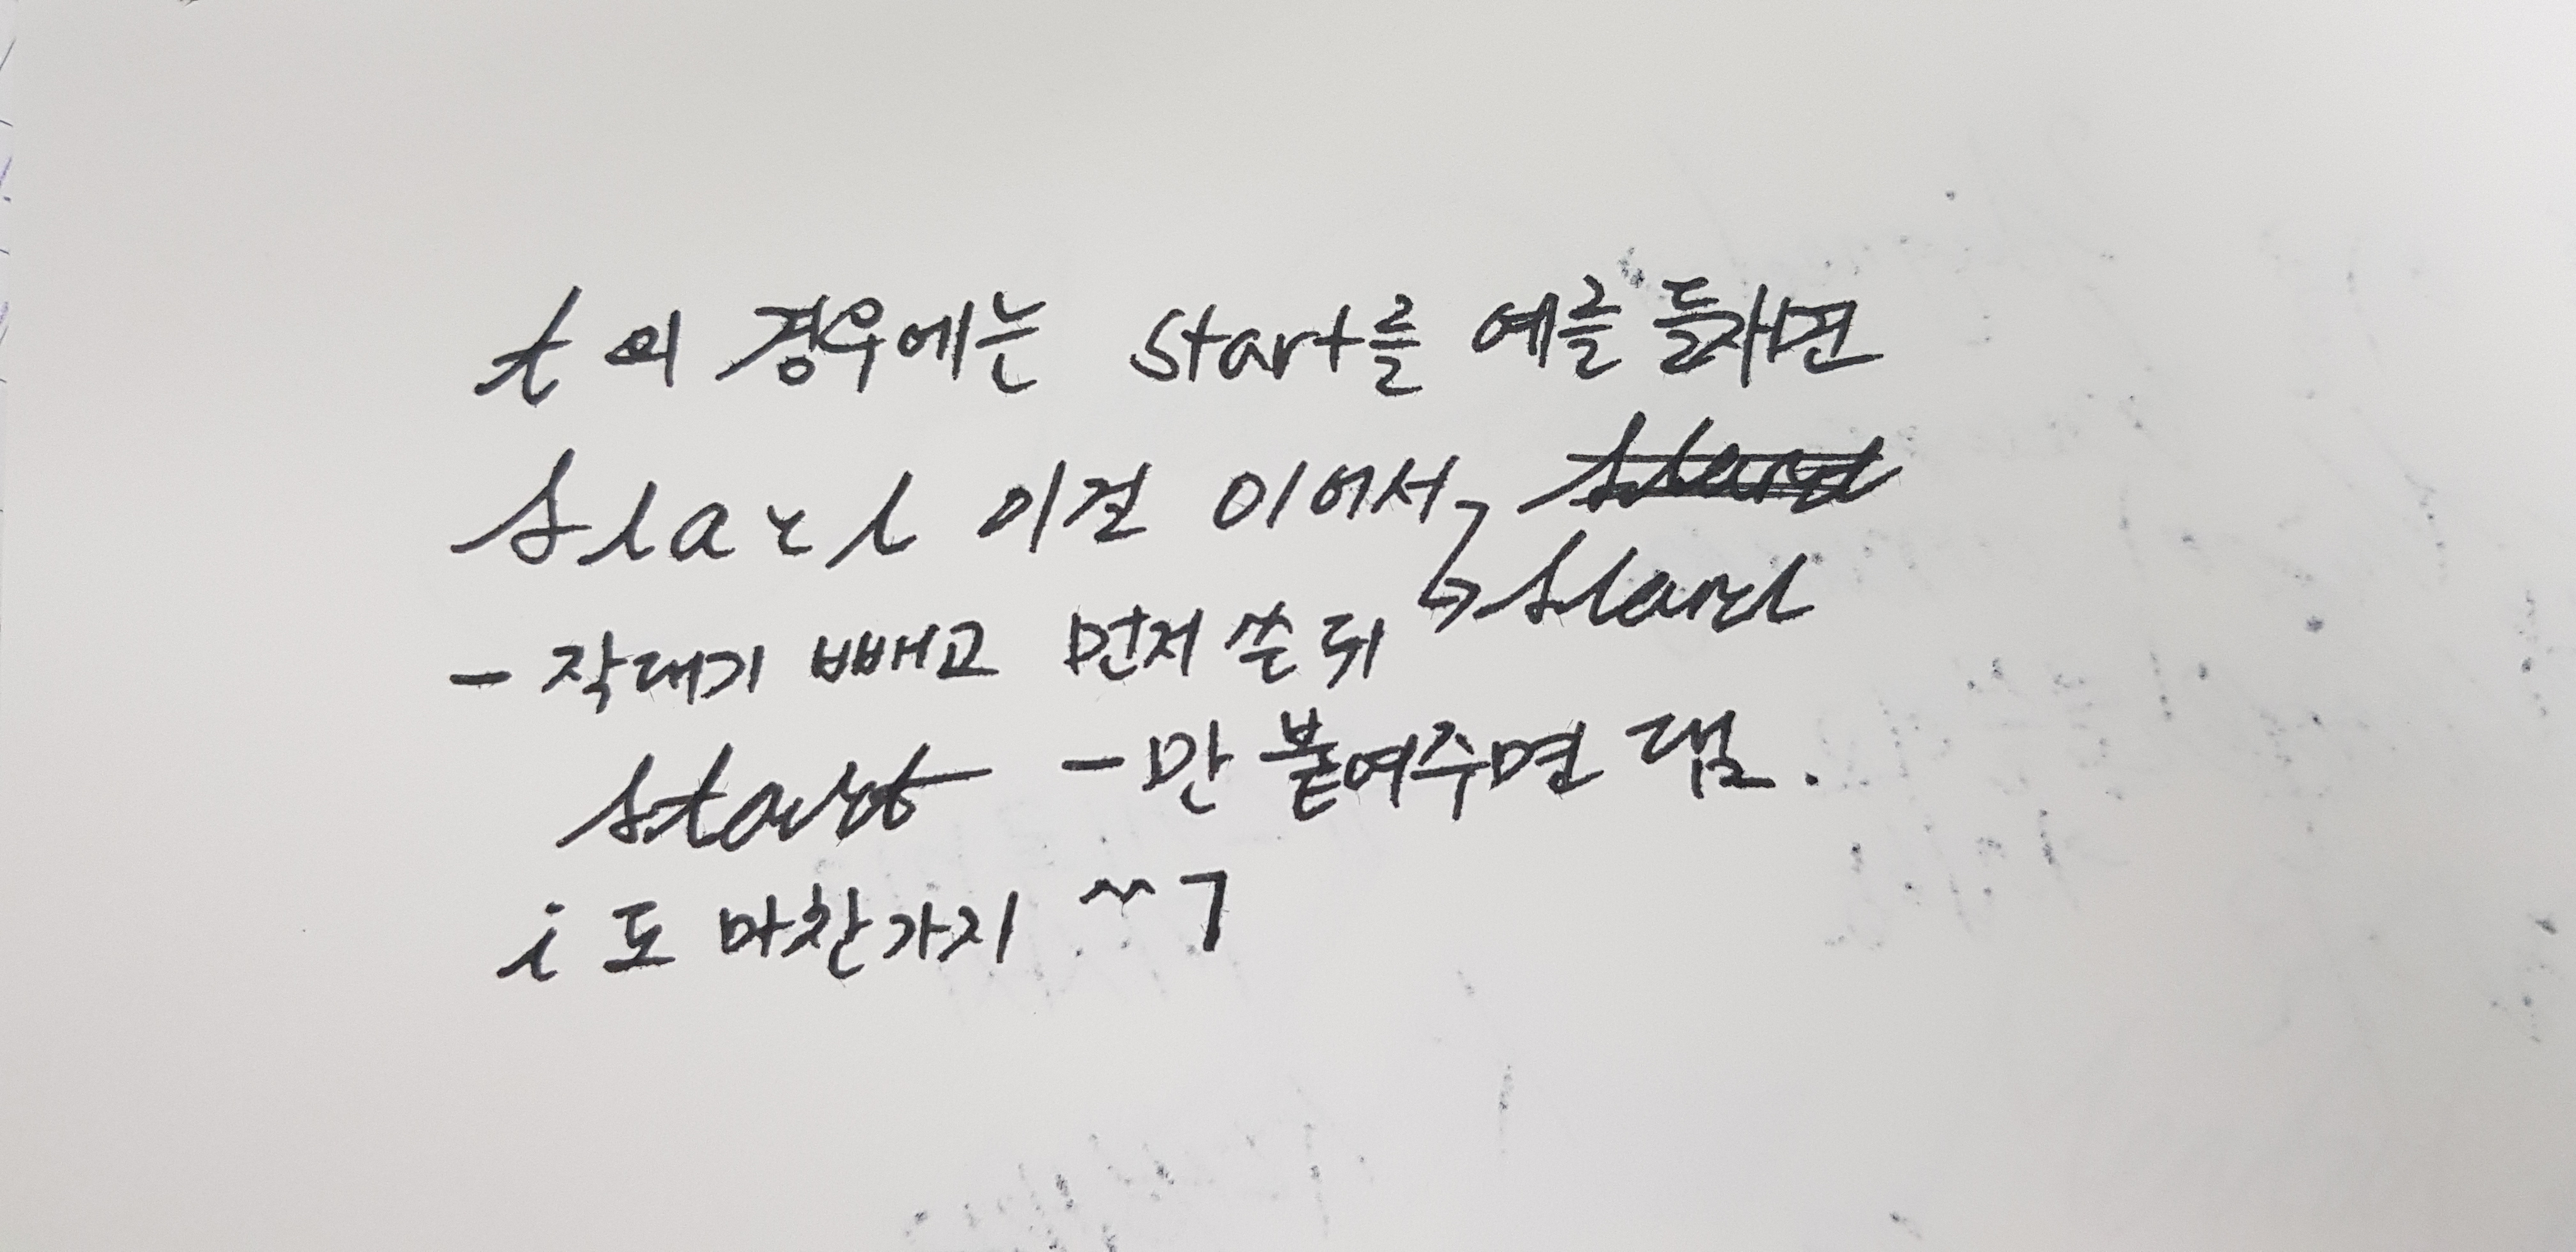 t의 경우에는 start를 예를 들자면
slarl 이걸 이어서
↳ slarl
- 작대기 빼고 먼저 쓴 뒤
start -만 붙여주면 댐.
i도 마찬가지 ^^ㄱ